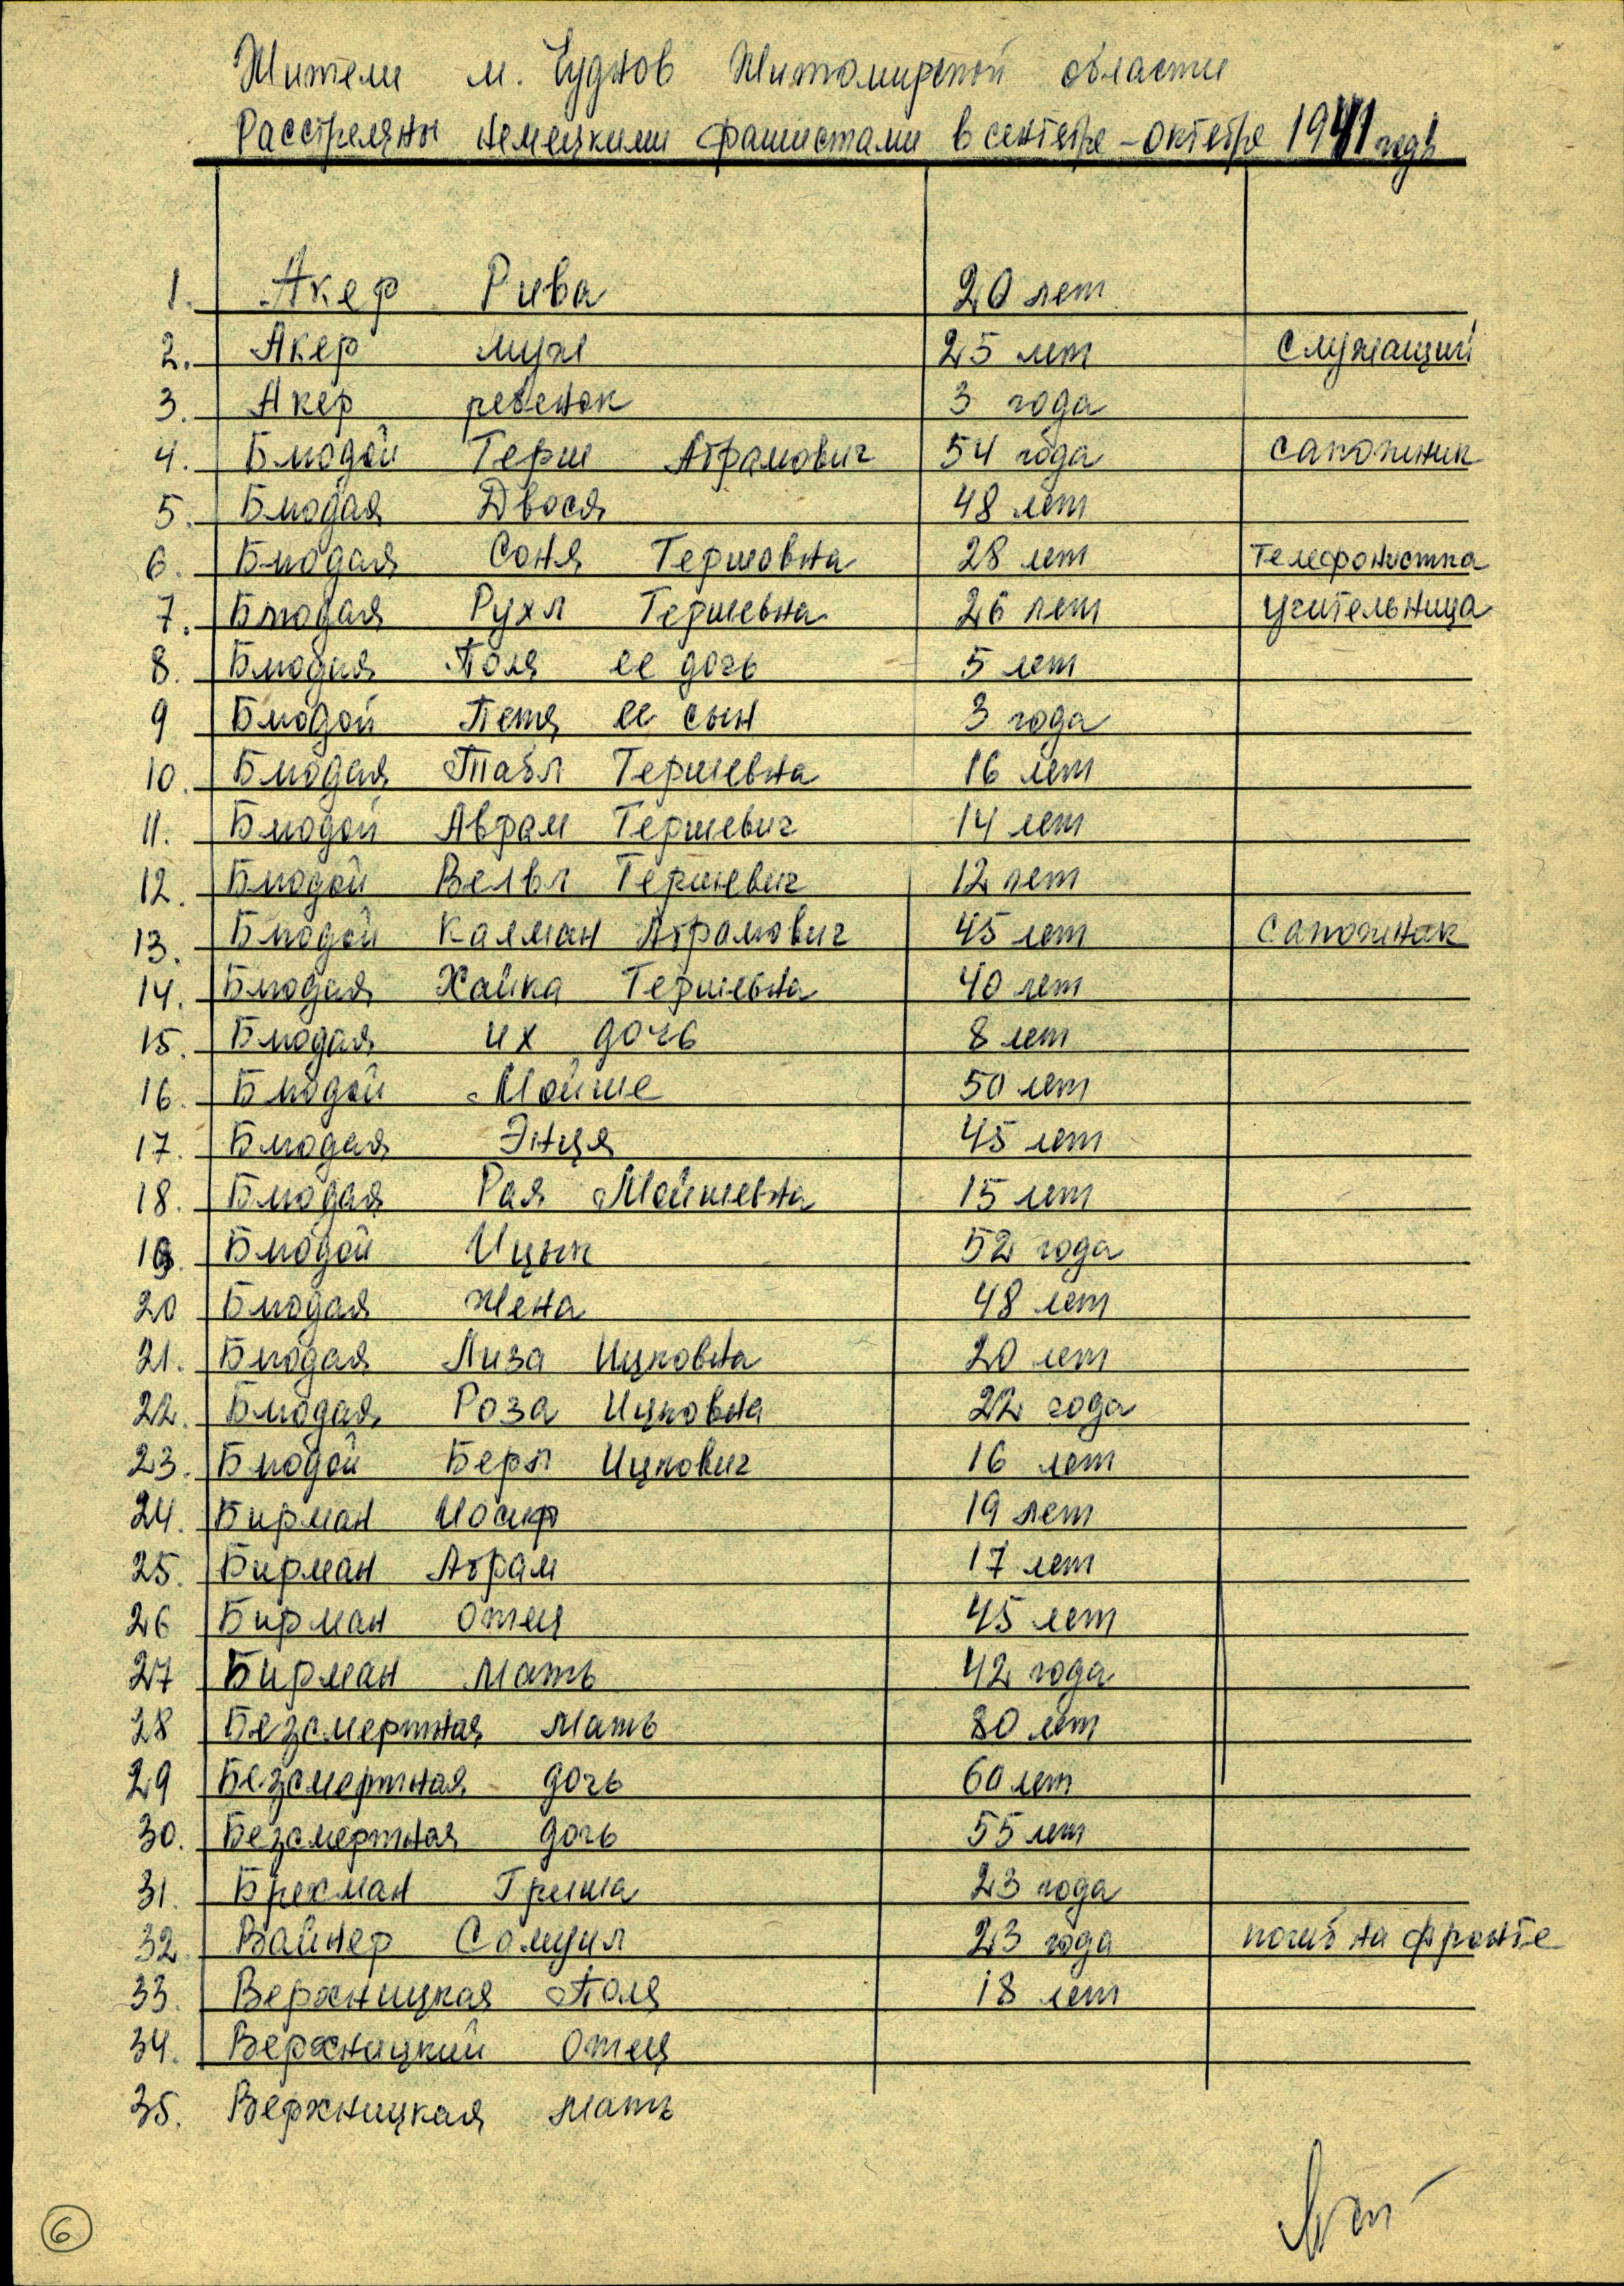 Жители м. Чуднов Житомирской области
Расстреляны немецкими фашистами в сентябре - октябре 1941 года
1. Акер Рива 20 лет
2. Акер муж 25 лет служащий
3. Акер ребенок 3 года
4. Блюдой Герш Абрамович 54 года сапожник
5. Блюдая Двося 48 лет
6. Блюдая Соня Гершовна 28 лет Телефонистка
7. Блюдая Рухл Гершевна 26 лет учительница
8. Блюдая Поля ее дочь 5 лет
9 Блюдой Петя ее сын 3 года
10. Блюдая Табл Гершевна 16 лет
11. Блюдой Аврам Гершевич 14 лет
12. Блюдой Велвл Гершевич 12 лет
13. Блюдой Калман Абрамович 45 лет Сапожник
14. Блюдая Хайка Гершевна 40 лет
15. Блюдая их дочь 8 лет
16. Блюдой Мойше 50 лет
17. Блюдая Энця 45 лет
18. Блюдая Рая Мойшевна 15 лет
19. Блюдой Ицык 52 года
20 Блюдая жена 48 лет
21. Блюдая Лиза Ицковна 20 лет
22. Блюдая Роза Ицковна 22 года
23. Блюдой Берл Ицкович 16 лет
24. Бирман Иосиф 19 лет
25. Бирман Абрам 17 лет
26 Бирман отец 45 лет
27 Бирман мать 42 года
28 Безсмертная мать 80 лет
29 Безсмертная дочь 60 лет
30. Безсмертная дочь 55 лет
31. Брехман Гриша 23 года
32. Вайнер Самуил 23 года погиб на фронте
33. Верхницкая Поля 18 лет
34. Верхницкий отец
35. Верхницкая мать
6